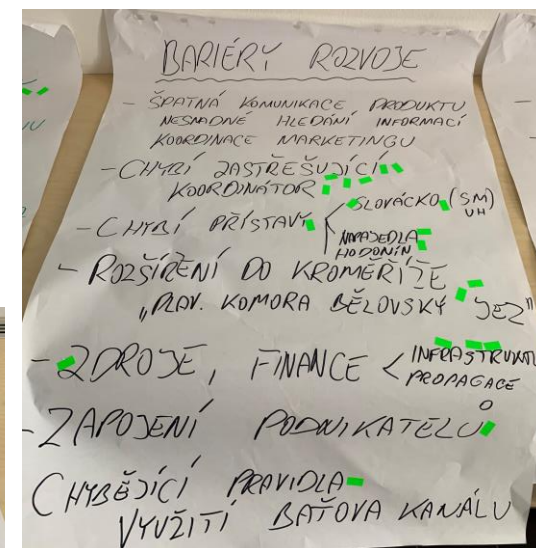 BARIÉRY ROZVOJE
- ŠPATNÁ KOMUNIKACE PRODUKTU
NESNADNÉ HLEDÁNÍ INFORMACÍ
KOORDINACE MARKETINGU
- CHYBÍ ZASTŘEŠUJÍCÍ
KOORDINÁTOR
- CHYBÍ PŘÍSTAVY < SLOVÁCKO (SM)
UH
NAPAJEDLA
HODONÍN
- ROZŠÍŘENÍ DO KROMĚŘÍŽE
"PLAV. KOMORA BĚLOVSKÝ JEZ"
- ZDROJE, FINANCE < INFRASTRUKT
PROPAGACE
- ZAPOJENÍ PODNIKATELŮ
CHYBĚJÍCÍ PRAVIDLA
VYUŽITÍ BAŤOVA KANÁLU